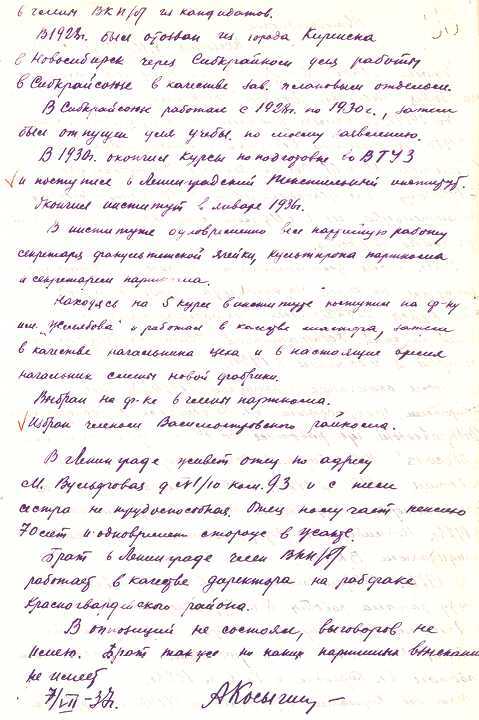 в члены ВКП/б/ из кандидатов.
В 1928г. был отозван из города Киренска
в Новосибирск через Сибкрайком для работы
в Сибкрайсоюз в качестве зав. плановым отделом.
В Сибкрайсоюзе работал с 1928г. по 1930г., затем
был отпущен для учебы по моему заявлению.
В 1930г. окончил курсы по подготовке во ВТУЗ
и поступил в Ленинградский текстильный институт.
Окончил институт в январе 1936г.
В институте одновременно вел партийную работу
секретаря факультетской ячейки, культпропа парткома
и секретарем парткома.
Находясь на 5 курсе в институте поступил на ф-ку
им. "Желябова" и работал в качестве мастера, затем
в качестве начальника цеха и в настоящее время
начальник смены новой фабрики.
Выбран на ф-ке в члены парткома.
Избран членом Василеостровского райкома.
В Ленинграде живет отец по адресу
М. Бульдговая д №1/10 ком. 93 и с ним
сестра не трудоспособная. Отец получает пенсию
70 лет и одновременно сторож в
Брат в Ленинграде член ВКП/б/
работает в качестве директора на рабфаке
Красногвардейского района.
В оппозиции не состоял, выговоров не
имею. Брат также ни каких партийных взысканий
не имеет
7/VII-37. АКосыгин